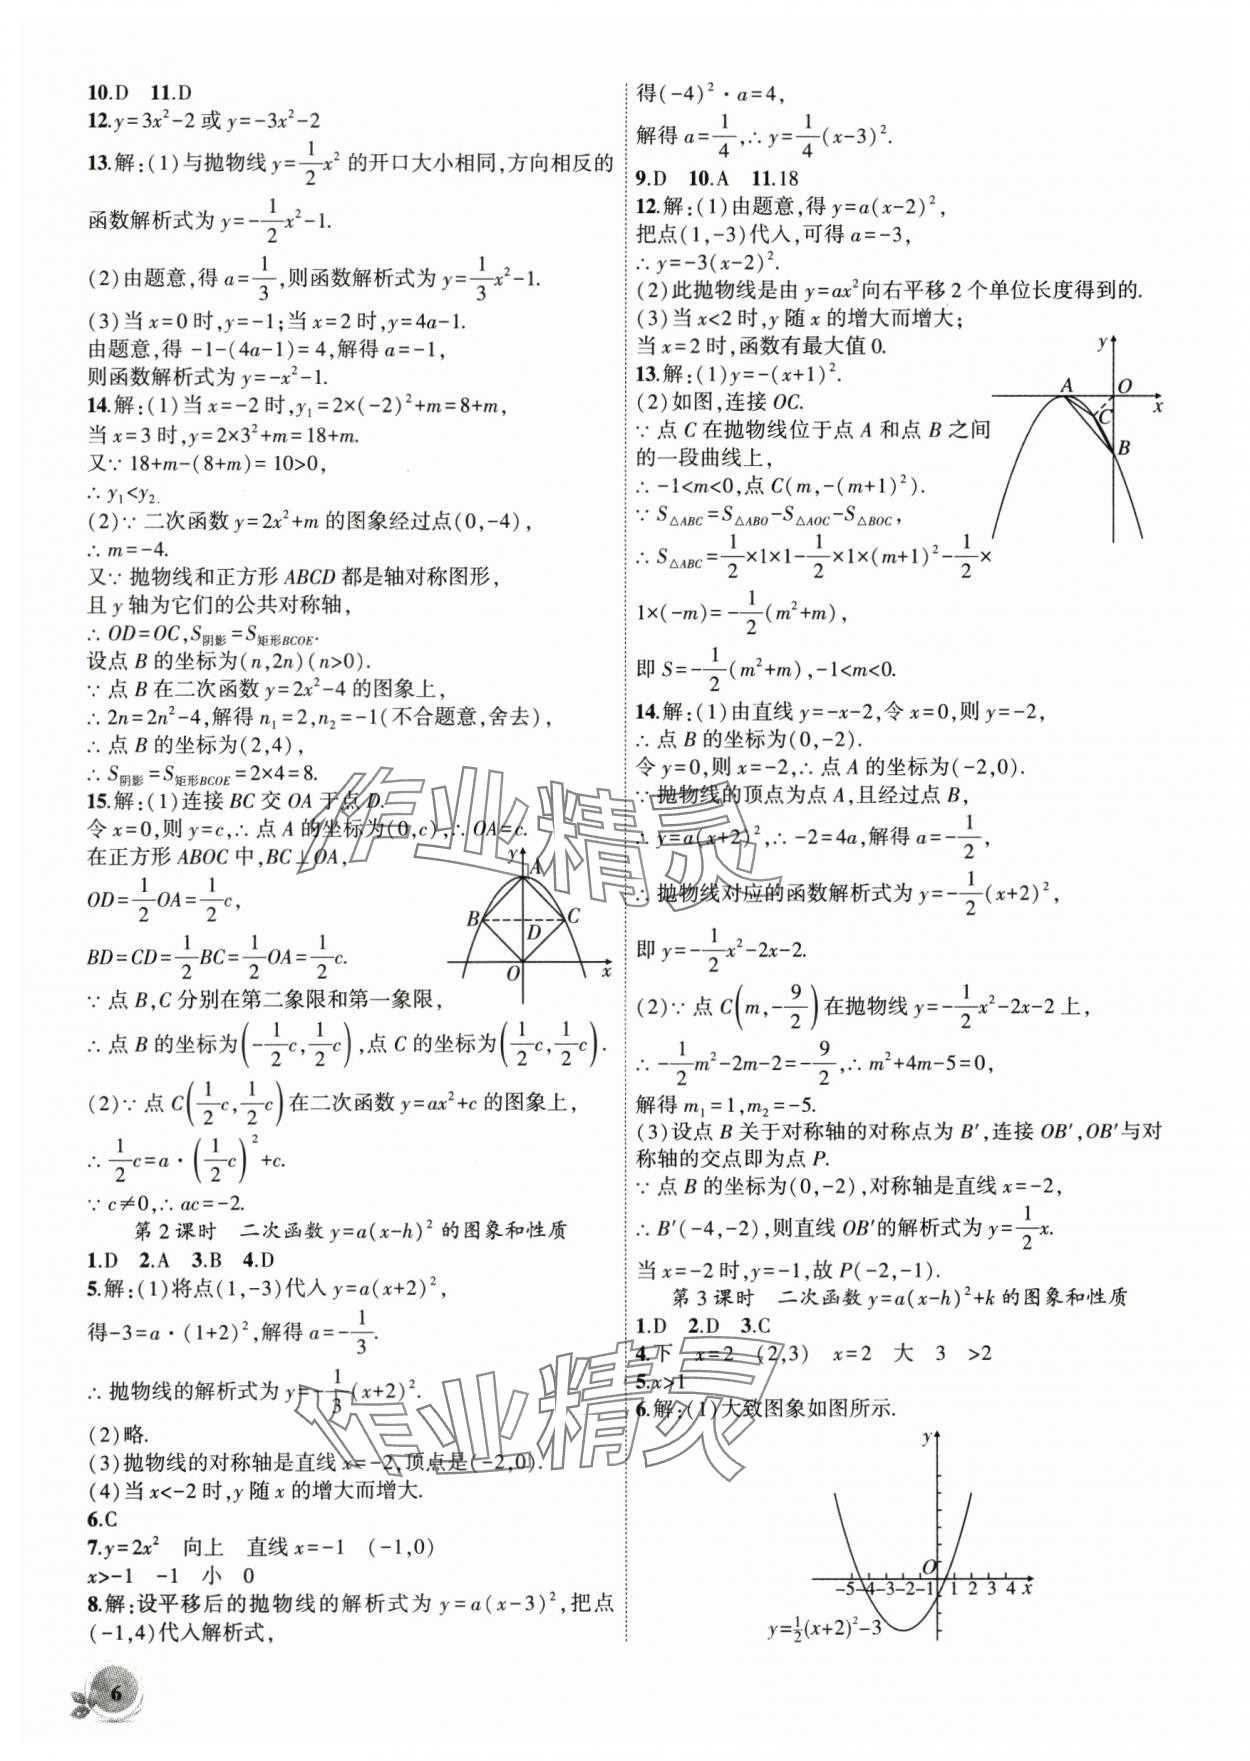 10.D　11.D
12.y=3x²-2或y=-3x²-2
13.解:(1)与抛物线y=1/2x²的开口大小相同,方向相反的
函数解析式为y=-1/2x²-1.
(2)由题意,得a=1/3,则函数解析式为y=1/3x²-1.
(3)当x=0时,y=-1;当x=2时,y=4a-1.
由题意,得-1-(4a-1)=4,解得a=-1,
则函数解析式为y=-x²-1.
14.解:(1)当x=-2时,y₁=2×(-2)²+m=8+m,
当x=3时,y=2×3²+m=18+m.
又∵18+m-(8+m)=10>0,
∴y₁<y₂.
(2)∵二次函数y=2x²+m的图象经过点(0,-4),
∴m=-4.
又∵抛物线和正方形ABCD都是轴对称图形,
且y轴为它们的公共对称轴,
∴OD=OC,S阴影=S矩形BCOE.
设点B的坐标为(n,2n)(n>0).
∵点B在二次函数y=2x²-4的图象上,
∴2n=2n²-4,解得n₁=2,n₂=-1(不合题意,舍去),
∴点B的坐标为(2,4),
∴S阴影=S矩形BCOE=2×4=8.
15.解:(1)连接BC交OA于点D.
令x=0,则y=c,∴点A的坐标为(0,c),∴OA=c.
在正方形ABOC中,BC⊥OA,
OD=1/2OA=1/2c,
BD=CD=1/2BC=1/2OA=1/2c.
y
A
B
C
D
O
x
∵点B,C分别在第二象限和第一象限,
∴点B的坐标为(-1/2c,1/2c),点C的坐标为(1/2c,1/2c).
(2)∵点C(1/2c,1/2c)在二次函数y=ax²+c的图象上,
∴1/2c=a·(1/2c)²+c.
∵c≠0,∴ac=-2.
第2课时　二次函数y=a(x-h)²的图象和性质
1.D　2.A　3.B　4.D
5.解:(1)将点(1,-3)代入y=a(x+2)²,
得-3=a·(1+2)²,解得a=-1/3.
∴抛物线的解析式为y=-1/3(x+2)².
(2)略.
(3)抛物线的对称轴是直线x=-2,顶点是(-2,0).
(4)当x<-2时,y随x的增大而增大.
6.C
7.y=2x²　向上　直线x=-1　(-1,0)
x>-1　-1　小　0
8.解:设平移后的抛物线的解析式为y=a(x-3)²,把点
(-1,4)代入解析式,
得(-4)²·a=4,
解得a=1/4,∴y=1/4(x-3)².
9.D　10.A　11.18
12.解:(1)由题意,得y=a(x-2)²,
把点(1,-3)代入,可得a=-3,
∴y=-3(x-2)².
(2)此抛物线是由y=ax²向右平移2个单位长度得到的.
(3)当x<2时,y随x的增大而增大;
当x=2时,函数有最大值0.
13.解:(1)y=-(x+1)².
(2)如图,连接OC.
∵点C在抛物线位于点A和点B之间
的一段曲线上,
∴-1<m<0,点C(m,-(m+1)²).
∵S△ABC=S△ABO-S△AOC-S△BOC,
y
A
O
x
C
B
∴S△ABC=1/2×1×1-1/2×1×(m+1)²-1/2×
1×(-m)=-1/2(m²+m),
即S=-1/2(m²+m),-1<m<0.
14.解:(1)由直线y=-x-2,令x=0,则y=-2,
∴点B的坐标为(0,-2).
令y=0,则x=-2,∴点A的坐标为(-2,0).
∵抛物线的顶点为点A,且经过点B,
∴y=a(x+2)²,∴-2=4a,解得a=-1/2,
∴抛物线对应的函数解析式为y=-1/2(x+2)²,
即y=-1/2x²-2x-2.
(2)∵点C(m,-9/2)在抛物线y=-1/2x²-2x-2上,
∴-1/2m²-2m-2=-9/2,∴m²+4m-5=0,
解得m₁=1,m₂=-5.
(3)设点B关于对称轴的对称点为B′,连接OB′,OB′与对
称轴的交点即为点P.
∵点B的坐标为(0,-2),对称轴是直线x=-2,
∴B′(-4,-2),则直线OB′的解析式为y=1/2x.
当x=-2时,y=-1,故P(-2,-1).
第3课时　二次函数y=a(x-h)²+k的图象和性质
1.D　2.D　3.C
4.下　x=2　(2,3)　x=2　大　3　>2
5.x>1
6.解:(1)大致图象如图所示.
y
O
-5-4-3-2-1 1 2 3 4 x
y=1/2(x+2)²-3
作业精灵
作业精灵
6